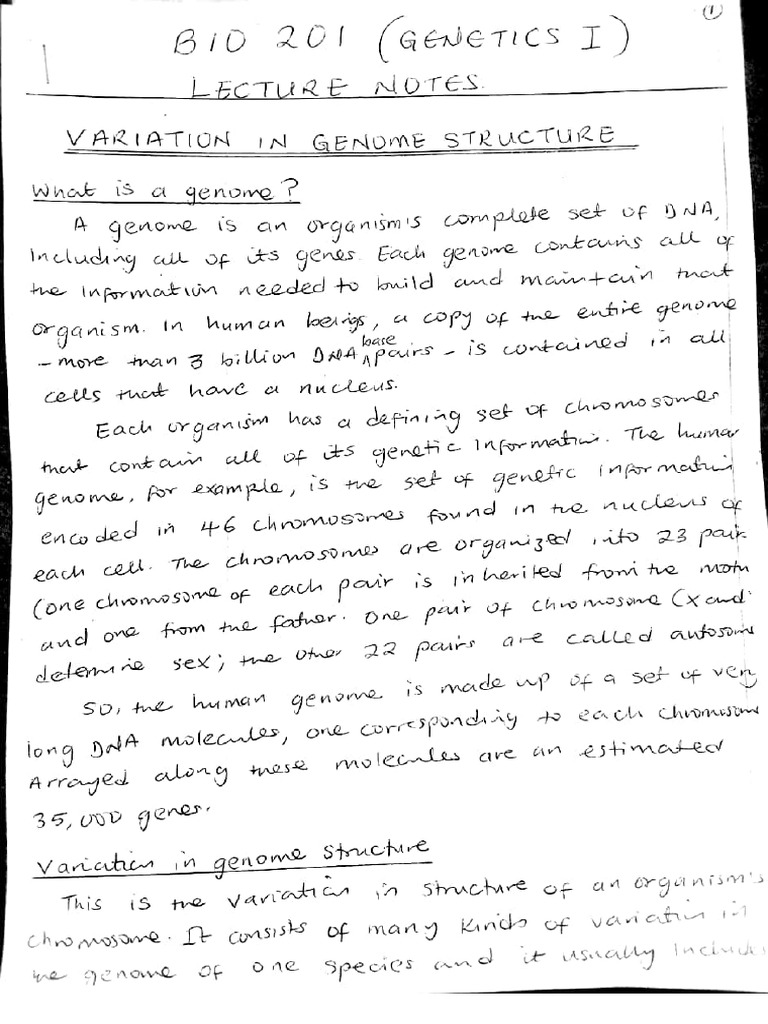 1
BIO 201 (GENETICS I)
LECTURE NOTES.
VARIATION IN GENOME STRUCTURE
What is a genome?
A genome is an organism's complete set of DNA,
including all of its genes. Each genome contains all of
the information needed to build and maintain that
organism. In human beings, a copy of the entire genome
base
- more than 3 billion DNA ^ pairs - is contained in all
cells that have a nucleus.
Each organism has a defining set of chromosomes
that contain all of its genetic information. The human
genome, for example, is the set of genetic information
encoded in 46 chromosomes found in the nucleus of
each cell. The chromosomes are organized into 23 pair
(one chromosome of each pair is inherited from the moth
and one from the father. One pair of chromosome (X and
determine sex; the other 22 pairs are called autosom
So, the human genome is made up of a set of very
long DNA molecules, one corresponding to each chromosom
Arrayed along these molecules are an estimated
35,000 genes.
Variation in genome structure
This is the variation in structure of an organism's
chromosome. It consists of many kinds of variation in
the genome of one species and it usually include